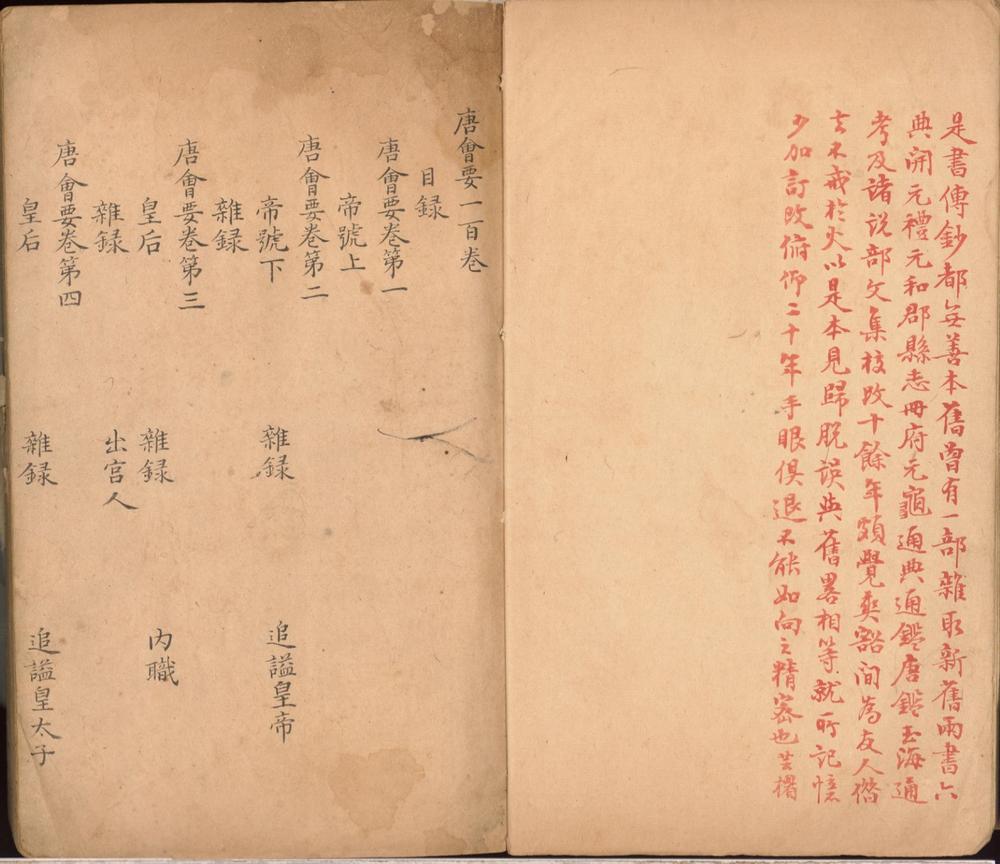 是書傳鈔都無善本舊曾有一部雜取新舊兩書六
典開元禮元和郡縣志冊府元龜通典通鑑唐鑑玉海通
考及諸說部文集校改十餘年頗覺爽豁间為友人偺
去不戒於火以是本見歸脫誤與舊畧相等就所記憶
少加訂改俯仰二十年手眼俱退不能如向之精密也芸楣
唐會要一百卷
目録
唐會要卷第一
帝號上
唐會要卷第二
帝號下 雜録 追謚皇帝
雜録
唐會要卷第三
皇后 雜録 内職
雜録 出宮人
唐會要卷第四
皇后 雜録 追謚皇太子